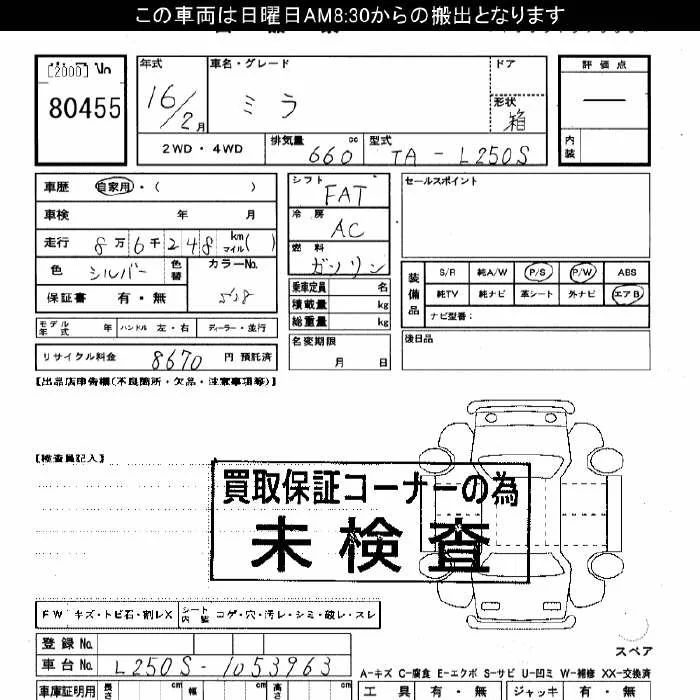 この車両は日曜日AM8:30からの搬出となります
[2000] No
80455
年式 車名・グレード ドア 評価点
16/2月 ミラ 形状 箱 ―
2WD・4WD 排気量 660 cc 型式 TA-L250S 内装
車歴 自家用・( )
車検 年 月
走行 8万6千248 km マイル( )
色 シルバー 色替 カラーNo.
保証書 有・無
シフト FAT
冷房 AC
燃料 ガソリン
乗車定員 名
積載量 kg
総重量 kg
名変期限
月 日
セールスポイント
装備品 S/R 純A/W P/S P/W ABS
純TV 純ナビ 革シート 外ナビ エアB
ナビ型番:
後日品
モデル年式 年 ハンドル 左・右 ディーラー・並行
リサイクル料金 8670 円 預託済
【出品店申告欄(不良箇所・欠品・注意事項等)】
【検査員記入】
買取保証コーナーの為
未検査
FW キズ・トビ石・割レX シート内装 コゲ・穴・汚レ・シミ・破レ・スレ
登録No.
車台No. L250S-1053963
スペア
A-キズ C-腐食 E-エクボ S-サビ U-凹ミ W-補修 XX-交換済
車庫証明用 長さ cm 幅 cm 高さ cm
工具 有・無 ジャッキ 有・無